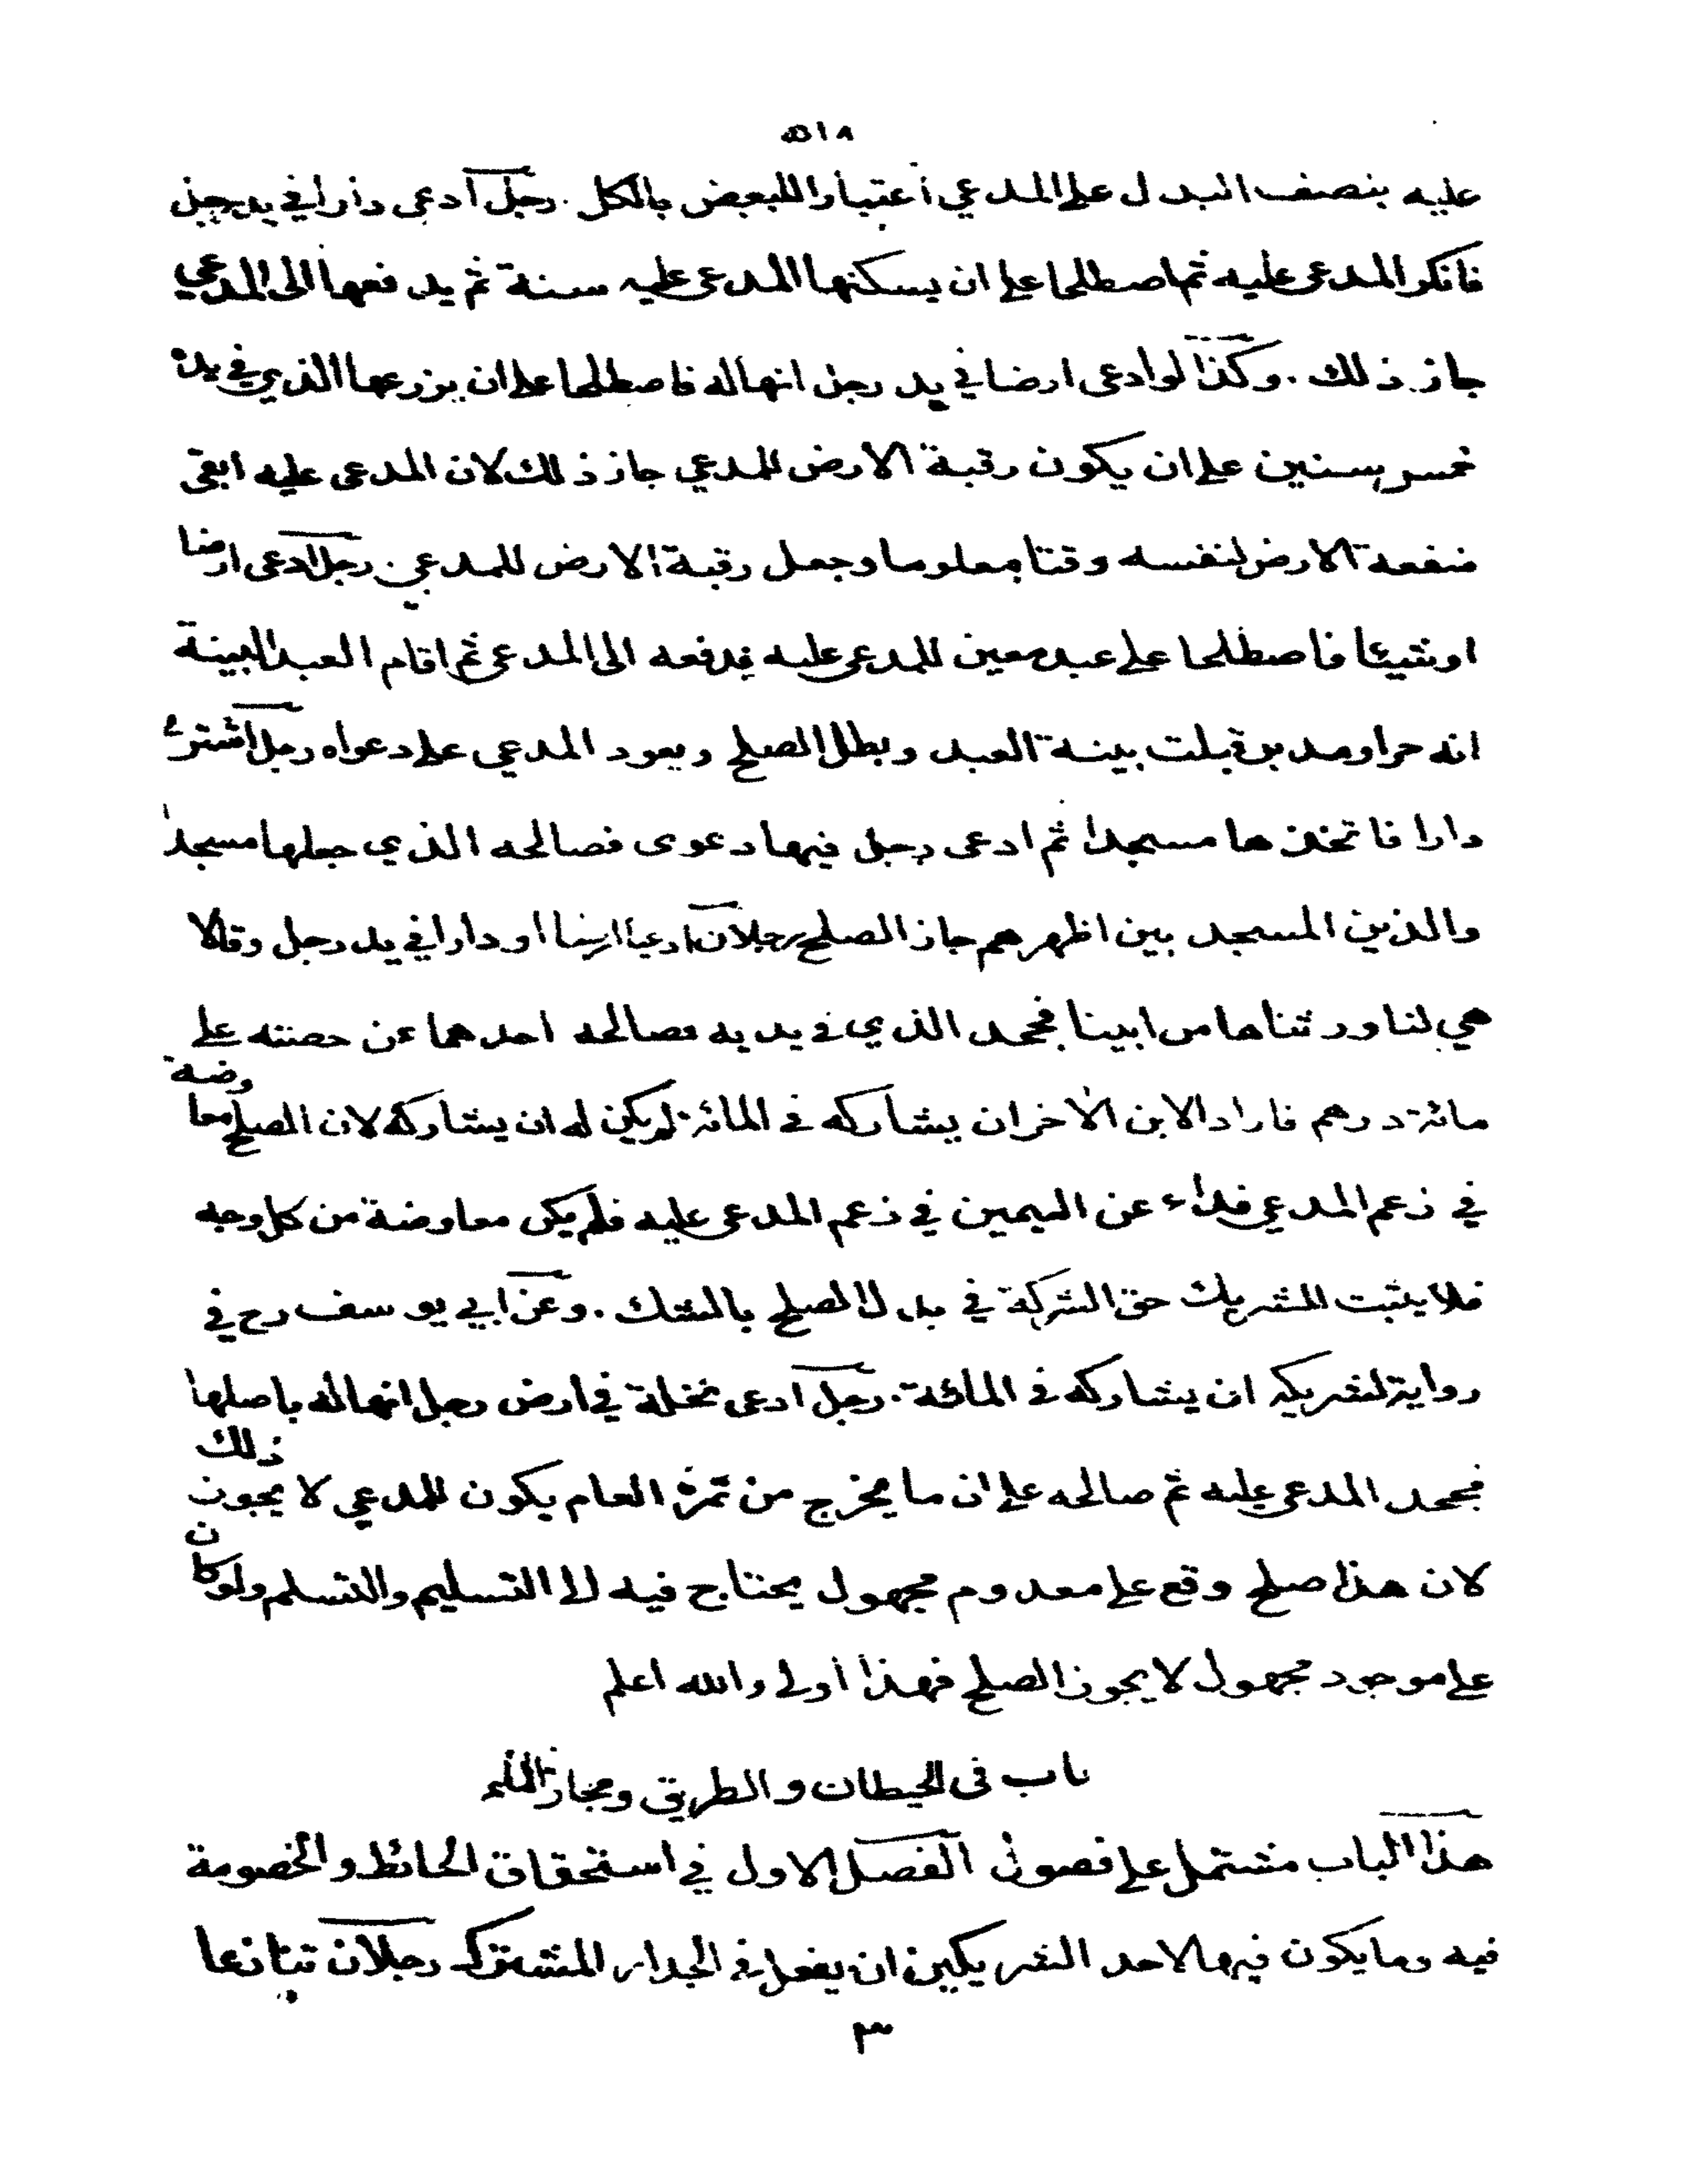 ٥١٨
عليه بنصف البدل على المدعي اعتبارا للبعض بالكل . رجل ادعى دارا في يد رجل
فانكر المدعى عليه ثم اصطلحا على ان يسكنها المدعى عليه سنة ثم يدفعها الى المدعي
جاز ذلك . وكذا لو ادعى ارضا في يد رجل انها له فاصطلحا على ان يزرعها الذي في يده
خمس سنين على ان يكون رقبة الارض للمدعي جاز ذلك لان المدعى عليه ابقى
منفعة الارض لنفسه وقتا معلوما وجعل رقبة الارض للمدعي . رجل ادعى ارضا
او شيئا فاصطلحا على عبد معين للمدعى عليه فدفعه الى المدعي ثم اقام العبد البينة
انه حر او مدبر قبلت بينة العبد وبطل الصلح ويعود المدعي على دعواه رجل اشترى
دارا فاتخذها مسجدا ثم ادعى رجل فيها دعوى فصالحه الذي جعلها مسجدا
والذين المسجد بين اظهرهم جاز الصلح رجلان ادعيا ارضا او دارا في يد رجل وقالا
هي لنا ورثناها من ابينا فجحد الذي في يديه فصالحه احدهما عن حصته على
مائة درهم فاراد الابن الاخر ان يشاركه في المائة لم يكن له ان يشاركه لان الصلح معاوضة
في زعم المدعي فداء عن اليمين في زعم المدعى عليه فلم يكن معاوضة من كل وجه
فلا يثبت للشريك حق الشركة في بدل الصلح بالشك . وعن ابي يوسف رح في
رواية لشريكه ان يشاركه في المائة . رجل ادعى نخلة في ارض رجل انها له باصلها
فجحد المدعى عليه ثم صالحه على ان ما يخرج من ثمرة العام يكون للمدعي لا يجوز ذلك
لان هذا صلح وقع على معدوم مجهول يحتاج فيه الى التسليم والتسلم ولو كان
على موجود مجهول لا يجوز الصلح فهذا اولى والله اعلم
باب في الحيطان والطريق ومجاز الماء
هذا الباب مشتمل على فصول الفصل الاول في استحقاق الحائط والخصومة
فيه وما يكون فيها لاحد الشريكين ان يفعل في الجدار المشترك رجلان تنازعا
٣